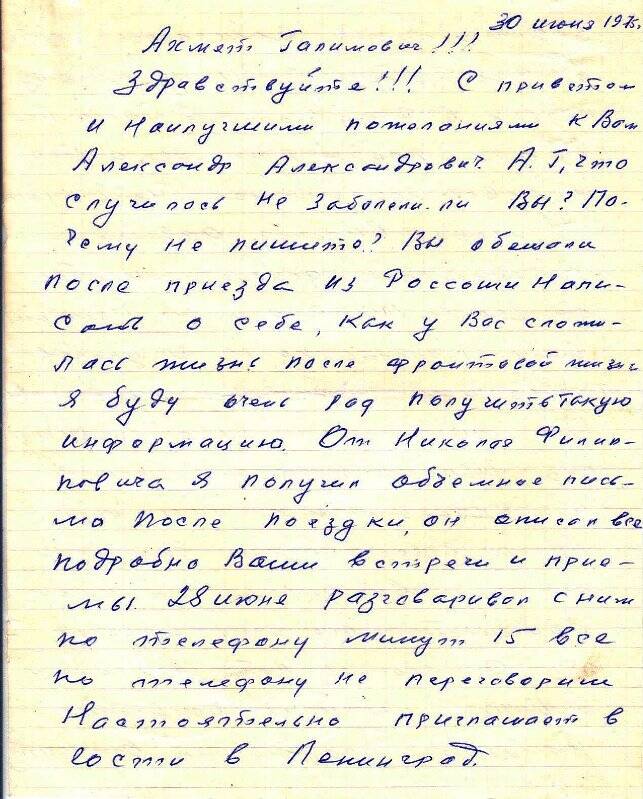 30 июня 1975.
Ахмет Галимович!!!
Здравствуйте!!! С приветом
и наилучшими пожеланиями к Вам
Александр Александрович. А.Г, что
случилось не заболели ли Вы? По-
чему не пишите? Вы обещали
после приезда из Россоши напи-
сать о себе, как у Вас сложи-
лась жизнь после фронтовой жизни
я буду очень рад получить такую
информацию. От Николая Филип-
повича я получил объемное пись-
мо после поездки, он описал все
подробно Ваши встречи и прие-
мы. 28 июня разговаривал с ним
по телефону минут 15 все
по телефону не переговорим
Настоятельно приглашает в
гости в Ленинград.